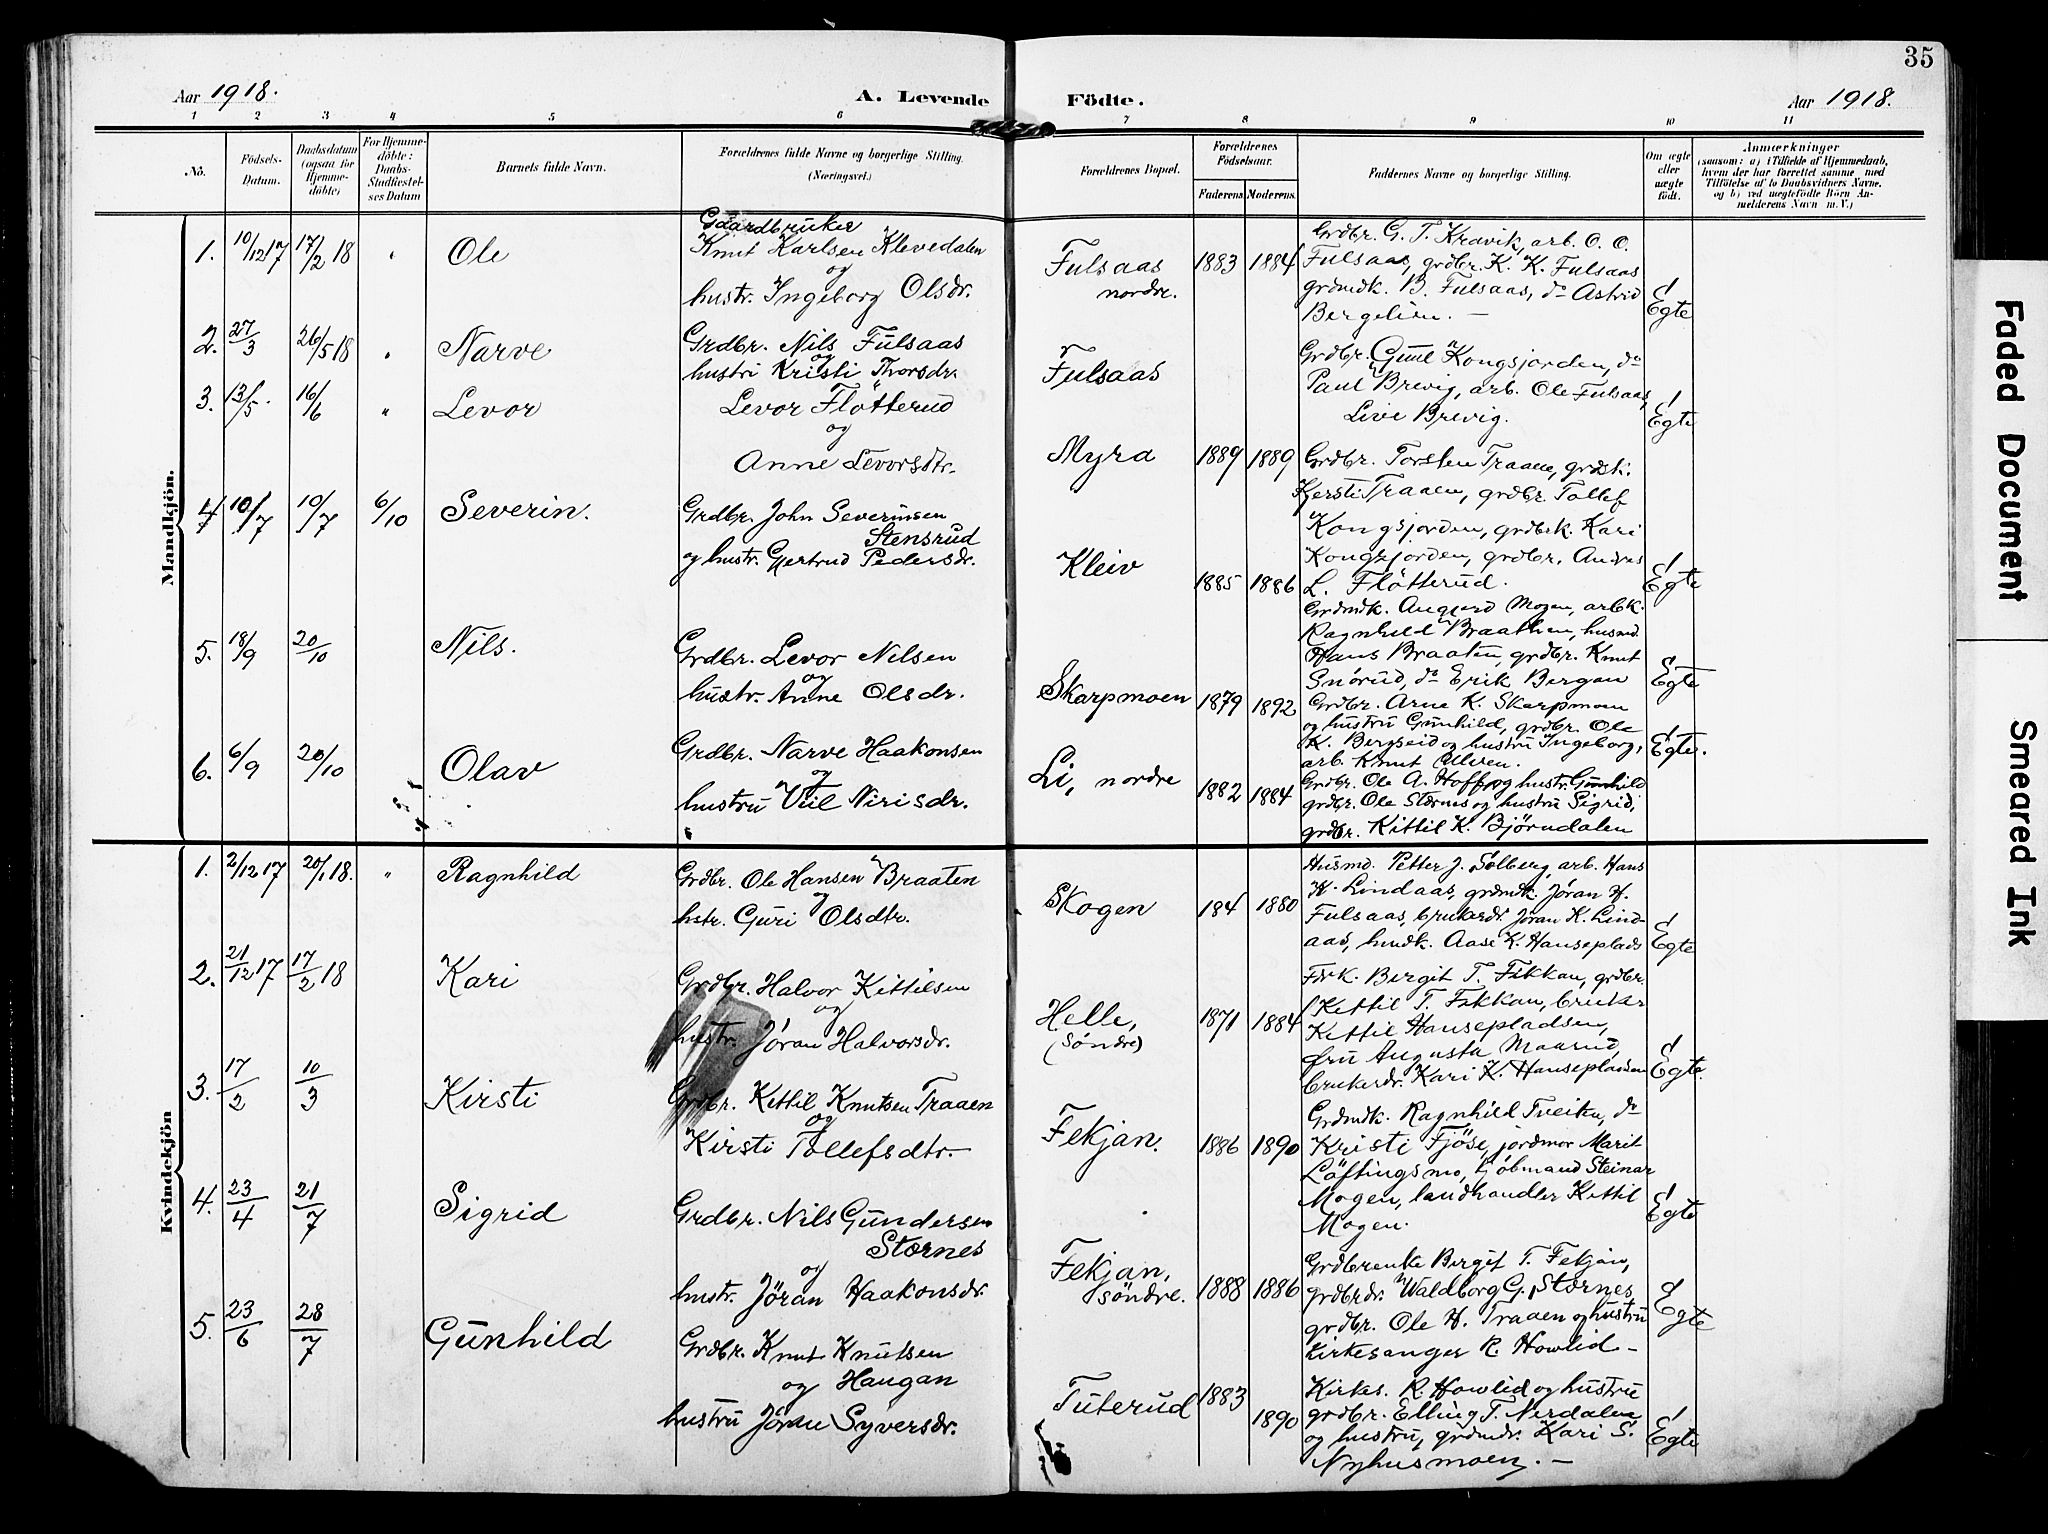 35
Aar 1918.
A. Levende Födte.
Aar 1918.
1 2 3 4 5 6 7 8 9 10 11
No.
Födsels-Datum.
Daabsdatum (ogsaa for Hjemme-döbte)
For Hjemme-döbte: Daabs-Stadfæstel-ses Datum
Barnets fulde Navn.
Forældrenes fulde Navne og borgerlige Stilling. (Næringsvei.)
Forældrenes Bopæl.
Forældrenes Fødselsaar.
Faderens Moderens.
Faddernes Navne og borgerlige Stilling.
Om ægte eller uægte födt.
Anmærkninger
(saasom: a) i Tilfælde af Hjemmedaab,
hvem der har forrettet samme, med
Tilföielse af to Daabsvidners Navne,
og b) ved uægtefödte Börn An-
melderens Navn m. V.)
Mandkjön.
1. 10/12 17 17/2 18 " Ole
Gaardbruker
Knut Karlsen Klevedalen
og
hustr. Ingeborg Olsdr.
Fulsaas
nordre.
1883 1884
Grdbr. G. T. Kravik, arb. O. O.
Fulsaas, grdbr. K. K. Fulsaas
grdmdk. B. Fulsaas, do Astrid
Bergelien. —
Egte
2. 27/3 26/5 18 " Narve
Grdbr. Nils Fulsaas
og
hustri Kristi Thorsdr.
Fulsaas
Grdbr. Guul Kongsjorden, do
Paul Brevig, arb. Ole Fulsaas,
Live Brevig.
Egte
3. 13/5 16/6 " Levor
Levor Flötterud
og
Anne Levorsdtr.
Myra
1889 1889
Grdbr. Torsten Traaen, grdbk.
Kjersti Traaen, grdbr. Tollef
Kongsjorden, grdbrk. Kari
Kongsjorden, grdbr. Andres
L. Flötterud.
Egte
4 10/7 10/7 6/10 Severin.
Grdbr. John Severinsen
Stensrud
og hustr. Gjertrud Pedersdr.
Kleiv
1885 1886
Grdmdk. Angjerd Mogen, arbk.
Ragnhild Braathen, husmd.
Hans Braaten, grdbr. Knut
Snörud, do Erik Bergan
Egte
5. 18/9 20/10 Nils.
Grdbr. Levor Nilsen
og
hustr. Anne Olsdr.
Skarpmoen
1879 1892
Grdbr. Arne K. Skarpmoen
og hustru Gunhild, grdbr. Ole
K. Bergseid og hustru Ingeborg,
arb. Knut
Egte.
6. 6/9 20/10 Olav
Grdbr. Narve Haakonsen
og
hustru Viil Nirisdr.
Li, nordre
1882 1884
Grdbr. Ole A. Hoff og hustr. Gunhild
grdbr. Ole Stærnes og hustru Sigrid,
grdbr. Kittil K. Bjørndalen
Kvindekjön
1. 2/12 17 20/1 18. " Ragnhild
Grdbr. Ole Hansen Braaten
og
hstr. Guri Olsdtr.
Skogen
184 1880
Husmd. Petter J. Sølberg, arb. Hans
K. Lindaas, grdmdk. Jøran H.
Fulsaas, brukerdr. Jøran K. Lind-
aas, hmdk. Aase K. Hanseplads
Egte
2. 21/12 17 17/2 18 Kari
Grdbr. Halvor Kittilsen
og
hustr. Jøran Halvorsdr.
Helle,
(Søndre)
1871 1884
Frk. Bergit T. Fekkan, grdbr.
Kettil T. Fekkan, bruker
Kettil Hansepladsen,
fru Augusta Maarud,
brukerdr. Kari K. Hansepladsen
Egte.
3. 17/2 10/3 Kirsti
Grdbr. Kittil Knutsen Traaen
og
Kirsti Tollefsdtr.
Fekjan.
1886 1890
Grdmdk. Ragnhild Tveiten, do
Kristi Fjöse, jordmor Marit
Löftingsmo, kjøbmand Steinar
Mogen, landhandler Kittil
Mogen.
Egte
4. 23/4 21/7 Sigrid
Grdbr. Nils Gundersen
Stærnes
og
hustr. Jöran Haakonsdr.
Fekjan,
søndre.
1888 1886
Grdbrenke Bergit T. Fekjan,
grdbrdr. Waldborg G. Stærnes,
grdbr. Ole H. Traaen og hustru
kirkesanger R. Howlid —
Egte
5. 23/6 28/7 Gunhild
Grdbr. Knut Knutsen
og Haugan
hustru Jöran Syversdr.
Tuterud
1883 1890
Kirkes. R. Howlid og hustru
grdbr. Elling T. Nerdalen
og hustru, grdmdr. Kari S.
Nyhusmoen. —
Egte
Faded Document
Smeared Ink